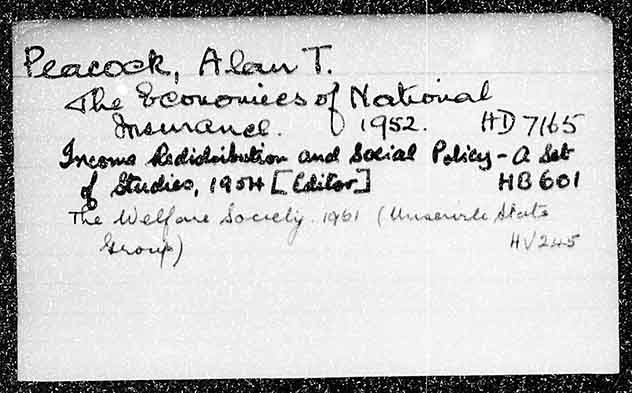 Peacock, Alan T.
The Economics of National
Insurance. 1952. HD 7165
Income Redistribution and Social Policy - A Set
of Studies, 1954 [Editor] HB601
The Welfare Society. 1961 (Unservile State
Group) HV245